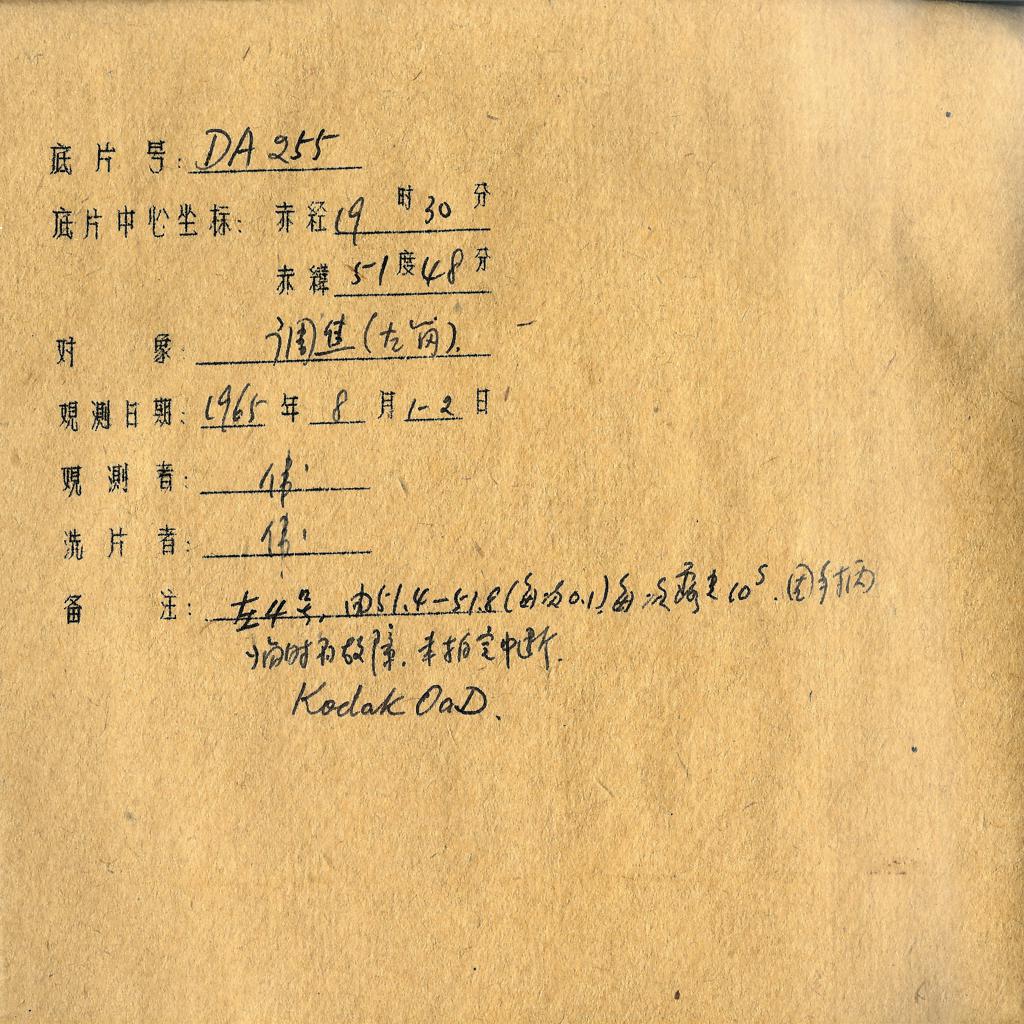 底片号: DA 255
底片中心坐标: 赤经 19 时 30 分
赤纬 51 度 48 分
对象: 调焦(左筒).
观测日期: 1965 年 8 月 1-2 日
观测者: 伟.
洗片者: 伟.
备注: 左4号, 由51.4-51.8(每次0.1)每次露光10ˢ. 因手柄
临时有故障. 未拍完中断.
Kodak OaD.